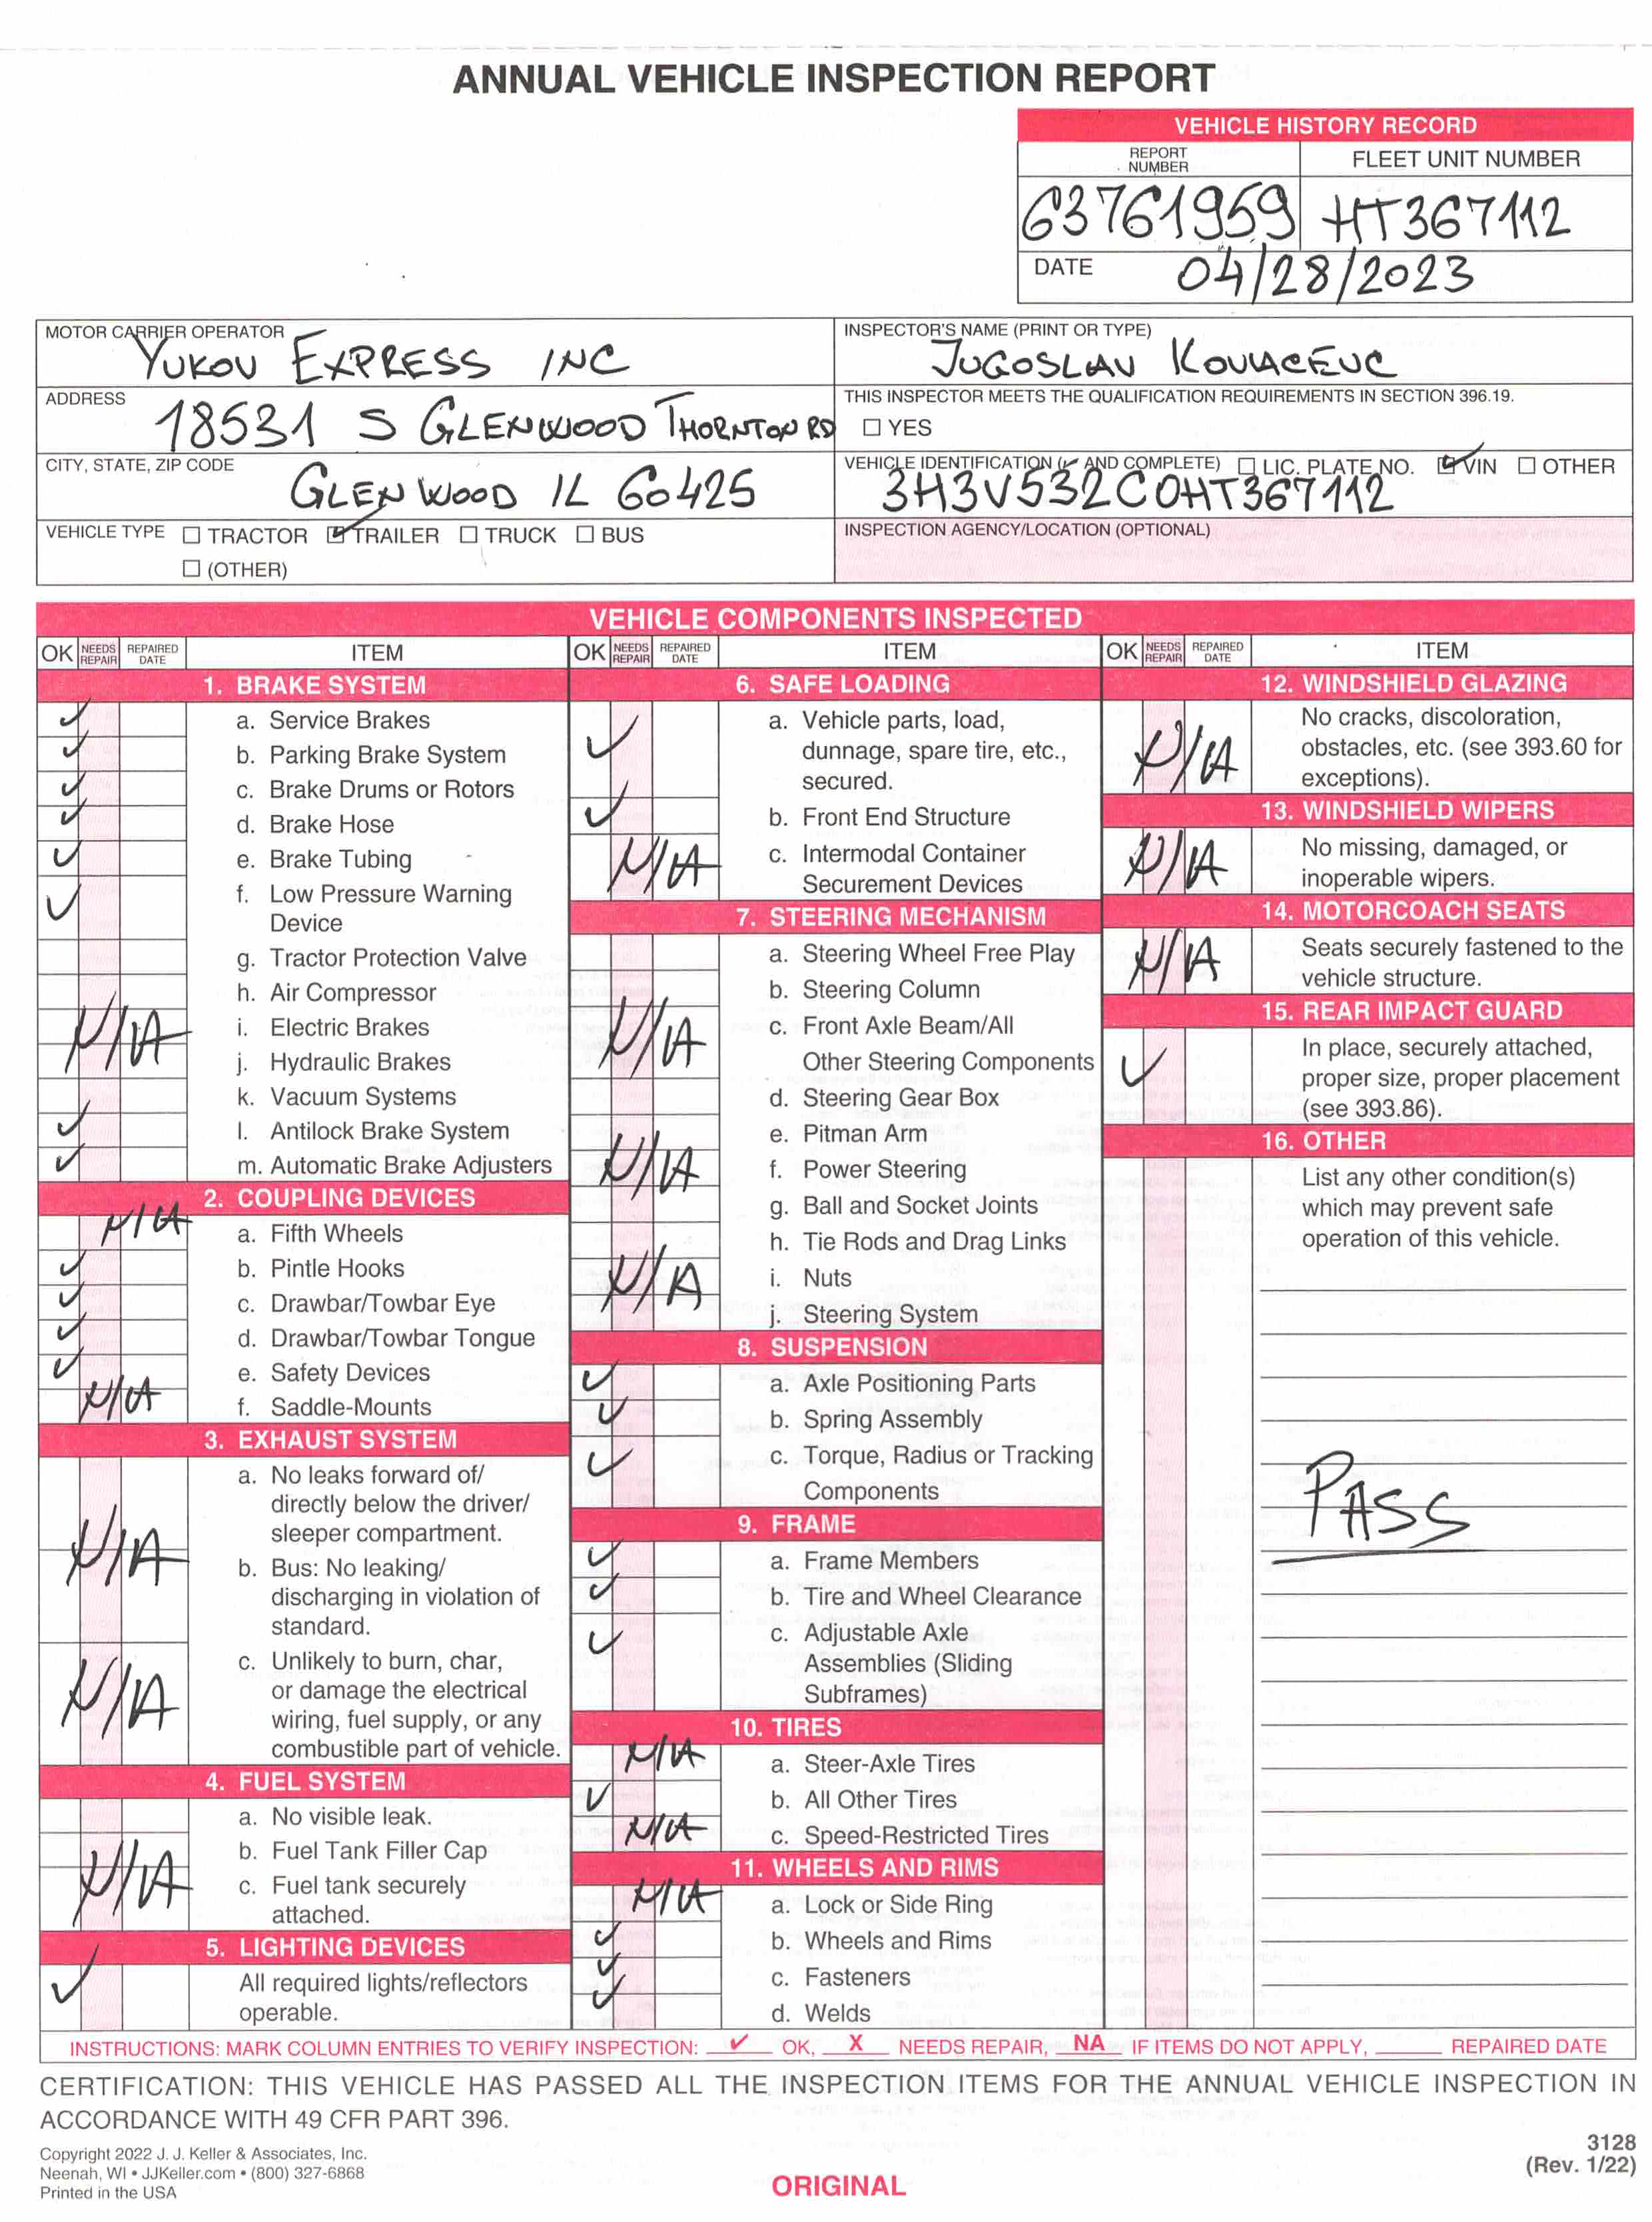 ANNUAL VEHICLE INSPECTION REPORT
VEHICLE HISTORY RECORD
REPORT NUMBER
FLEET UNIT NUMBER
63761959
HT367112
DATE
04/28/2023
MOTOR CARRIER OPERATOR
YUKOV EXPRESS INC
INSPECTOR'S NAME (PRINT OR TYPE)
JUGOSLAV
ADDRESS
18531 S GLENWOOD THORNTON RD
THIS INSPECTOR MEETS THE QUALIFICATION REQUIREMENTS IN SECTION 396.19.
☐ YES
CITY, STATE, ZIP CODE
GLENWOOD IL 60425
VEHICLE IDENTIFICATION (✓ AND COMPLETE) ☐ LIC. PLATE NO. ☑ VIN ☐ OTHER
3H3V532C0HT367112
VEHICLE TYPE ☐ TRACTOR ☑ TRAILER ☐ TRUCK ☐ BUS
☐ (OTHER)
INSPECTION AGENCY/LOCATION (OPTIONAL)
VEHICLE COMPONENTS INSPECTED
OK NEEDS REPAIR REPAIRED DATE ITEM
1. BRAKE SYSTEM
✓ a. Service Brakes
✓ b. Parking Brake System
✓ c. Brake Drums or Rotors
✓ d. Brake Hose
✓ e. Brake Tubing
✓ f. Low Pressure Warning
Device
g. Tractor Protection Valve
h. Air Compressor
N/A i. Electric Brakes
j. Hydraulic Brakes
k. Vacuum Systems
✓ l. Antilock Brake System
✓ m. Automatic Brake Adjusters
2. COUPLING DEVICES
N/A a. Fifth Wheels
✓ b. Pintle Hooks
✓ c. Drawbar/Towbar Eye
✓ d. Drawbar/Towbar Tongue
✓ e. Safety Devices
N/A f. Saddle-Mounts
3. EXHAUST SYSTEM
a. No leaks forward of/
directly below the driver/
sleeper compartment.
N/A b. Bus: No leaking/
discharging in violation of
standard.
N/A c. Unlikely to burn, char,
or damage the electrical
wiring, fuel supply, or any
combustible part of vehicle.
4. FUEL SYSTEM
a. No visible leak.
b. Fuel Tank Filler Cap
N/A c. Fuel tank securely
attached.
5. LIGHTING DEVICES
✓ All required lights/reflectors
operable.
OK NEEDS REPAIR REPAIRED DATE ITEM
6. SAFE LOADING
✓ a. Vehicle parts, load,
dunnage, spare tire, etc.,
secured.
✓ b. Front End Structure
N/A c. Intermodal Container
Securement Devices
7. STEERING MECHANISM
a. Steering Wheel Free Play
b. Steering Column
N/A c. Front Axle Beam/All
Other Steering Components
d. Steering Gear Box
e. Pitman Arm
N/A f. Power Steering
g. Ball and Socket Joints
h. Tie Rods and Drag Links
N/A i. Nuts
j. Steering System
8. SUSPENSION
✓ a. Axle Positioning Parts
✓ b. Spring Assembly
✓ c. Torque, Radius or Tracking
Components
9. FRAME
✓ a. Frame Members
✓ b. Tire and Wheel Clearance
✓ c. Adjustable Axle
Assemblies (Sliding
Subframes)
10. TIRES
N/A a. Steer-Axle Tires
✓ b. All Other Tires
N/A c. Speed-Restricted Tires
11. WHEELS AND RIMS
N/A a. Lock or Side Ring
✓ b. Wheels and Rims
✓ c. Fasteners
✓ d. Welds
OK NEEDS REPAIR REPAIRED DATE ITEM
12. WINDSHIELD GLAZING
No cracks, discoloration,
N/A obstacles, etc. (see 393.60 for
exceptions).
13. WINDSHIELD WIPERS
N/A No missing, damaged, or
inoperable wipers.
14. MOTORCOACH SEATS
N/A Seats securely fastened to the
vehicle structure.
15. REAR IMPACT GUARD
✓ In place, securely attached,
proper size, proper placement
(see 393.86).
16. OTHER
List any other condition(s)
which may prevent safe
operation of this vehicle.
PASS
INSTRUCTIONS: MARK COLUMN ENTRIES TO VERIFY INSPECTION: ✓ OK, X NEEDS REPAIR, NA IF ITEMS DO NOT APPLY, ______ REPAIRED DATE
CERTIFICATION: THIS VEHICLE HAS PASSED ALL THE INSPECTION ITEMS FOR THE ANNUAL VEHICLE INSPECTION IN
ACCORDANCE WITH 49 CFR PART 396.
Copyright 2022 J. J. Keller & Associates, Inc.
Neenah, WI • JJKeller.com • (800) 327-6868
Printed in the USA
ORIGINAL
3128
(Rev. 1/22)